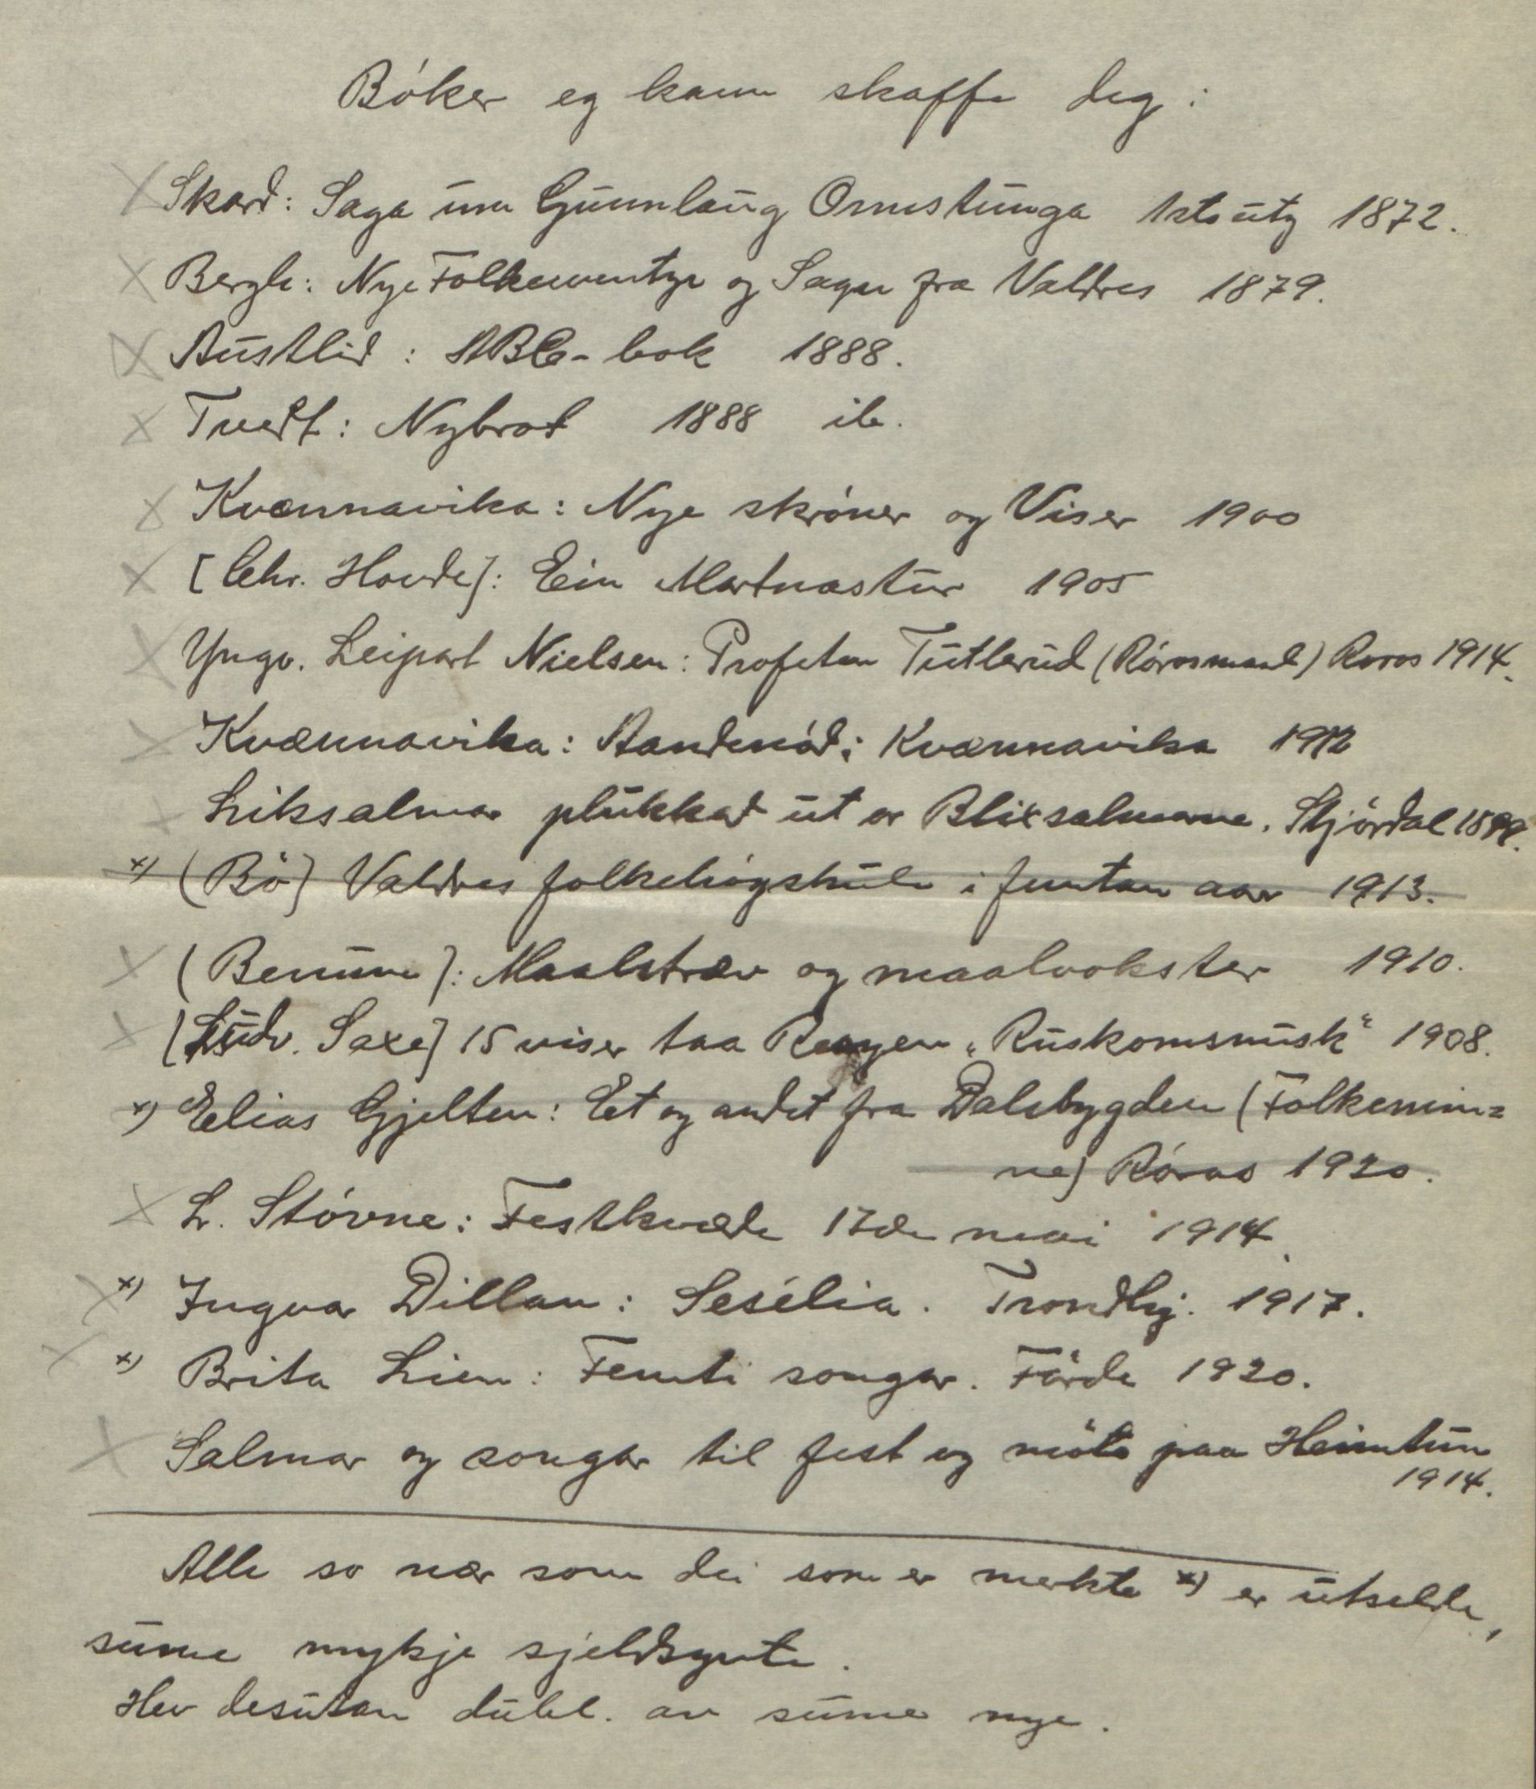 Bóker eg kann skaffe deg:
Skard: Saga um Gunnlaug Ormstunga 1ste utg 1872.
Bergh: Nye Folkeeventyr og Sagn fra Valdres 1879.
Austlid: ABC-bok 1888.
Tvedt: Nybrot 1888 ib.
Kvænnavika: Nye skróner og Viser 1900
[Chr. Hovde]: Ein Martnastur 1905
Yngv. Leipart Nielsen: Profeten Tutlerud (Rórosmaal) Roros 1914.
Kvænnavika: Aandenód i Kvænnavika
Liksalmar plukkat ut or Blixsalmarne. Stjórdal
x) (Bö) Valdres folkehógskule i femtan aar 1913.
(Bennne): Maalstræv og maalvokster 1910.
[Ludv. Saxe] 15 viser taa Revyen "Ruskomsnusk" 1908.
x) Elias Gjelten: Et og andet fra Dalsbygden (Folkemin=
ne) Róros 1920.
L. Stóvne: Festkvæde 17de mai 1914.
x) Ingvar Dillan: Sesélia. Trondhj. 1917.
x) Brita Lien: Femti songar. Förde 1920.
Salmar og songar til fest og möte paa Heimtun
1914.
Alle so nær som dei som er merkte x) er utselde,
sume mykje sjeldsynte.
Hev desutan dubl. av sume nye.